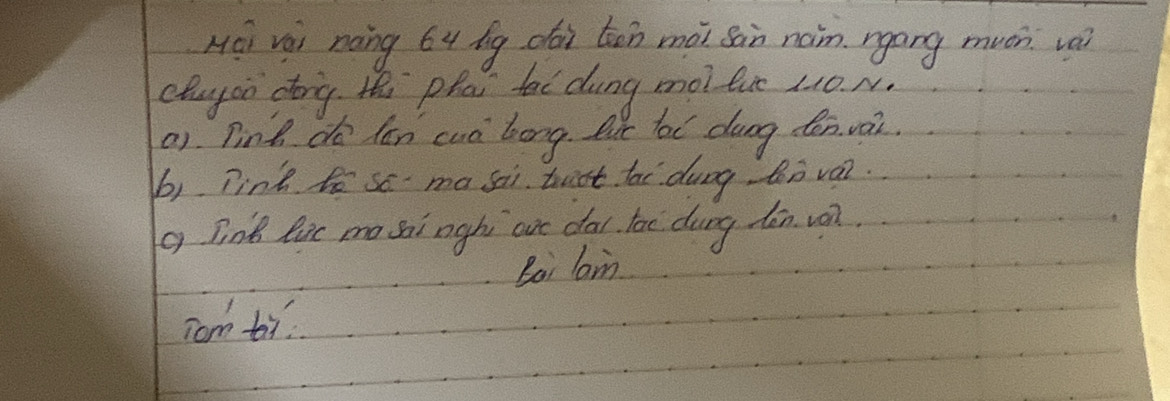 Một vật nặng 64 kg đặt trên mặt sàn nằm ngang muốn vật
chuyển động. thì phải tác dụng một lực 110.N.
a). Tính độ lớn của trọng lực tác dụng lên vật.
b). Tính hệ số ma sát trượt tác dụng lên vật.
c) Tính lực ma sát nghỉ cực đại tác dụng lên vật.
Bài làm
Tóm tắt: